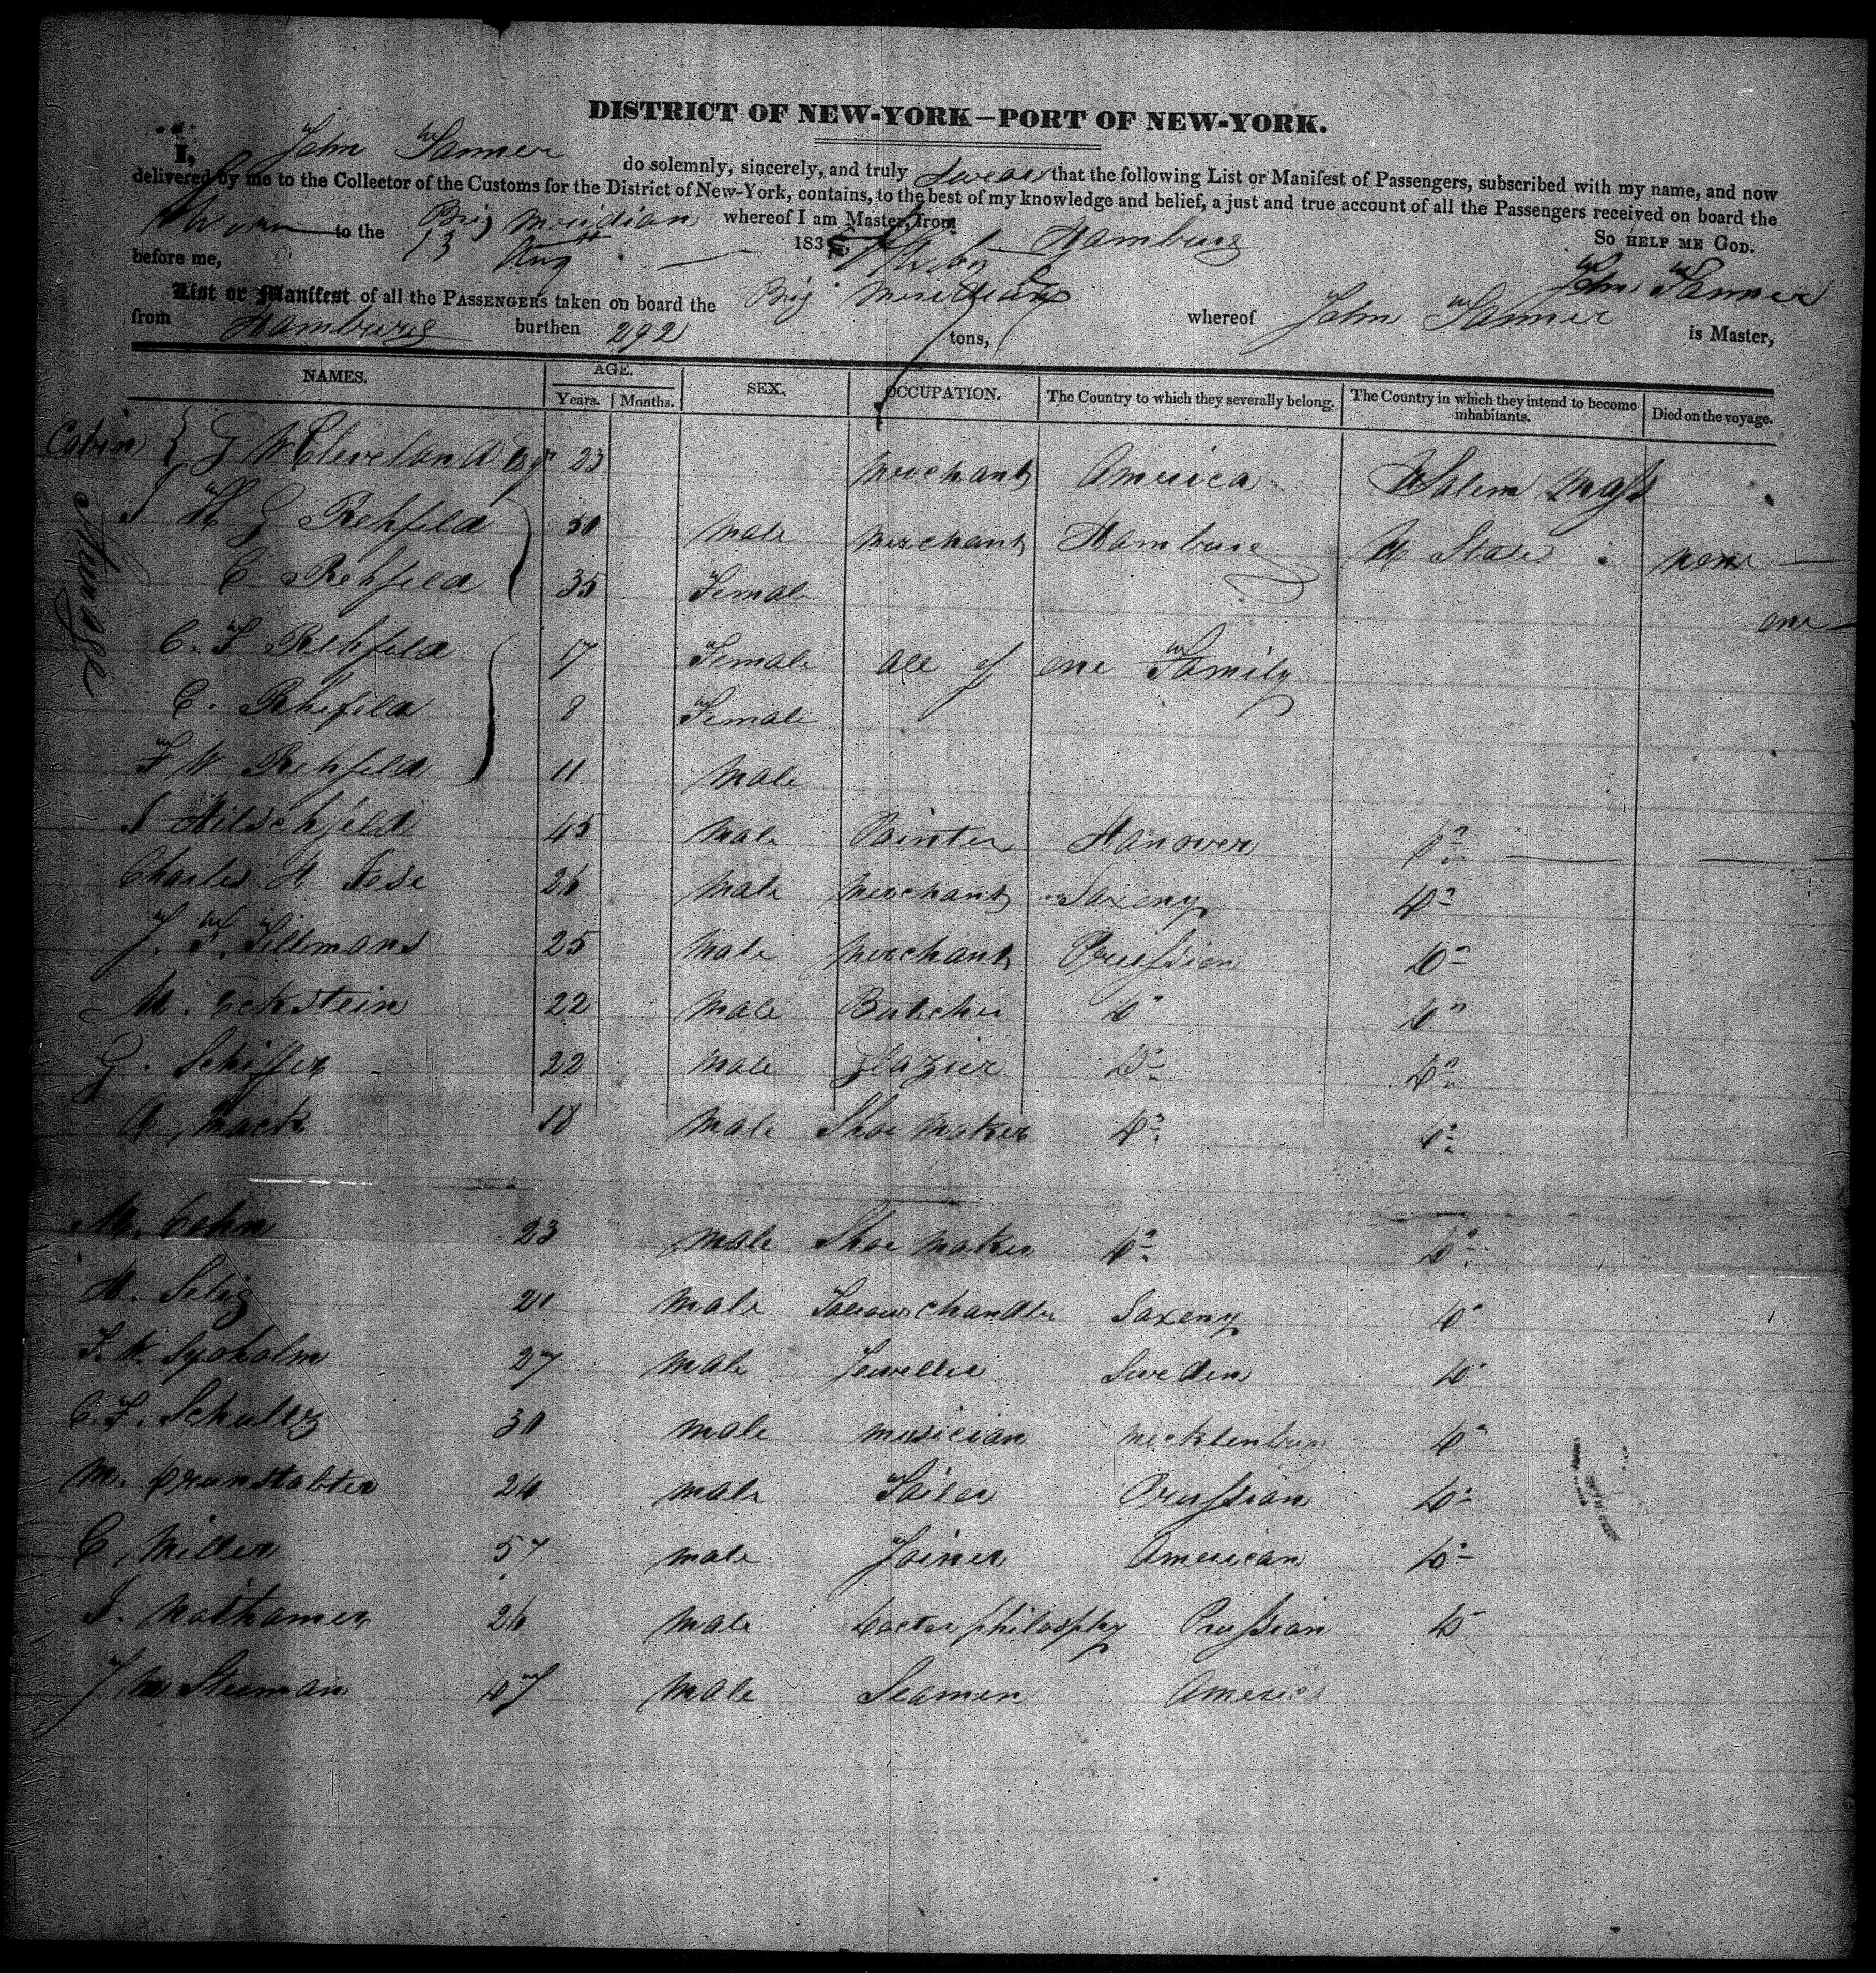 DISTRICT OF NEW-YORK—PORT OF NEW-YORK.
I, John Tanner do solemnly, sincerely, and truly Swear that the following List or Manifest of Passengers, subscribed with my name, and now
delivered by me to the Collector of the Customs for the District of New-York, contains, to the best of my knowledge and belief, a just and true account of all the Passengers received on board the
Brig Meridian whereof I am Master, from Hamburg
Sworn to the 13 Augt 183 So HELP ME GOD.
before me, John Tanner
List or Manifest of all the PASSENGERS taken on board the Brig Meridian whereof John Tanner is Master,
from Hamburg burthen 292 tons,
NAMES. AGE. SEX. OCCUPATION. The Country to which they severally belong. The Country in which they intend to become inhabitants. Died on the voyage.
Years. Months.
Cabin G W Cleveland 23 merchant America Salem Mass
Sturage
H G Rehfeld 50 male merchant Hamburg U States none
C Rehfeld 35 Female
C. F Rehfeld 17 Female all of one Family
C. Rehfeld 8 Female
F W Rehfeld 11 male
Hilschfeld 45 male Painter Hanover Do
Charles H Jese 26 male merchant Saxony Do
J. F. Tillmans 25 male merchant Prussian Do
M. Eckstein 22 male Butcher Do Do
G. Schiffer 22 male Glazier Do Do
A Mack 18 male Shoe maker Do Do
M. Cohn 23 male Shoe maker Do Do
H. Selig 21 male Tallow chandler Saxony Do
F. W. Syoholm 27 male Jeweller Sweden Do
C. F. Schultz 30 male musician Mecklenburg Do
M. 26 male Tailer Prussian Do
C, Miller 57 male Joiner American Do
J. 26 male Doctor philosphy Prussian Do
J M Steeman 47 male Seamen America